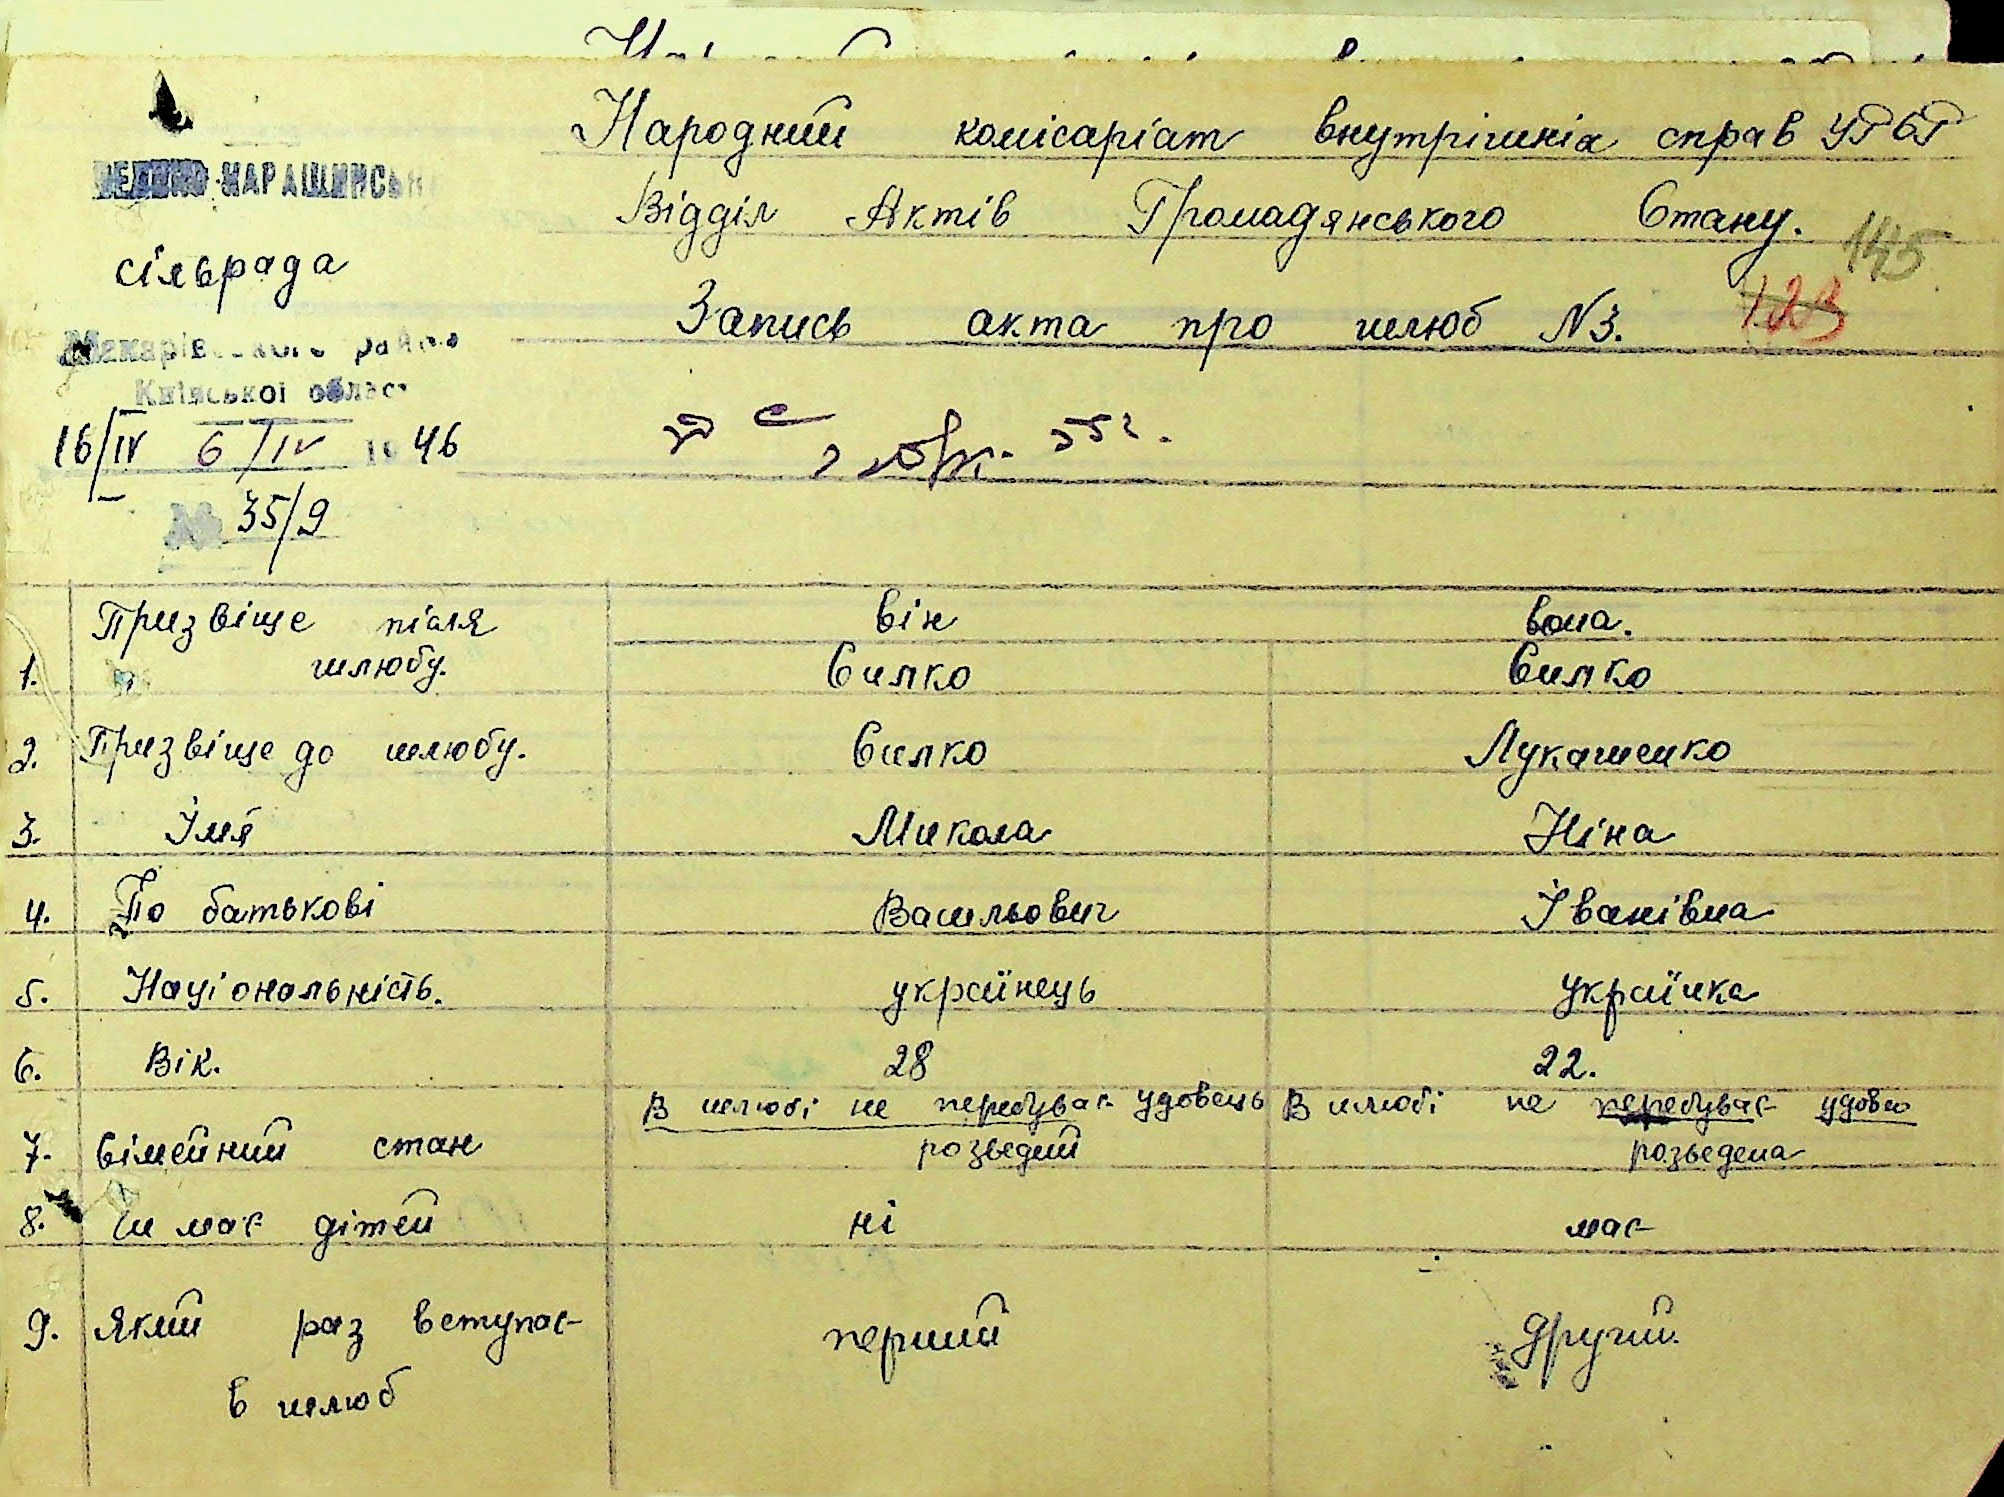 Народний комісаріат внутрішніх справ УРСР
Відділ Актів Громадянського Стану.
145
Запись акта про шлюб №3.
123
ВЕЛИКО-КАРАШИНСЬКА
сільрада
Макарівського району
Київської області
16/IV 6/IV 1946
№ 35/9
Призвіще після він вона.
1. шлюбу. Силко Силко
2. Призвіще до шлюбу. Силко Лукашенко
3. Імя Микола Ніна
4. По батькові Васильович Іванівна
5. Національність. українець українка
6. Вік. 28 22.
В шлюбі не перебуває удовець В шлюбі не перебуває удова
7. Сімейний стан розведий розведена
8. Чи має дітей ні має
9. Який раз вступає перший другий.
в шлюб